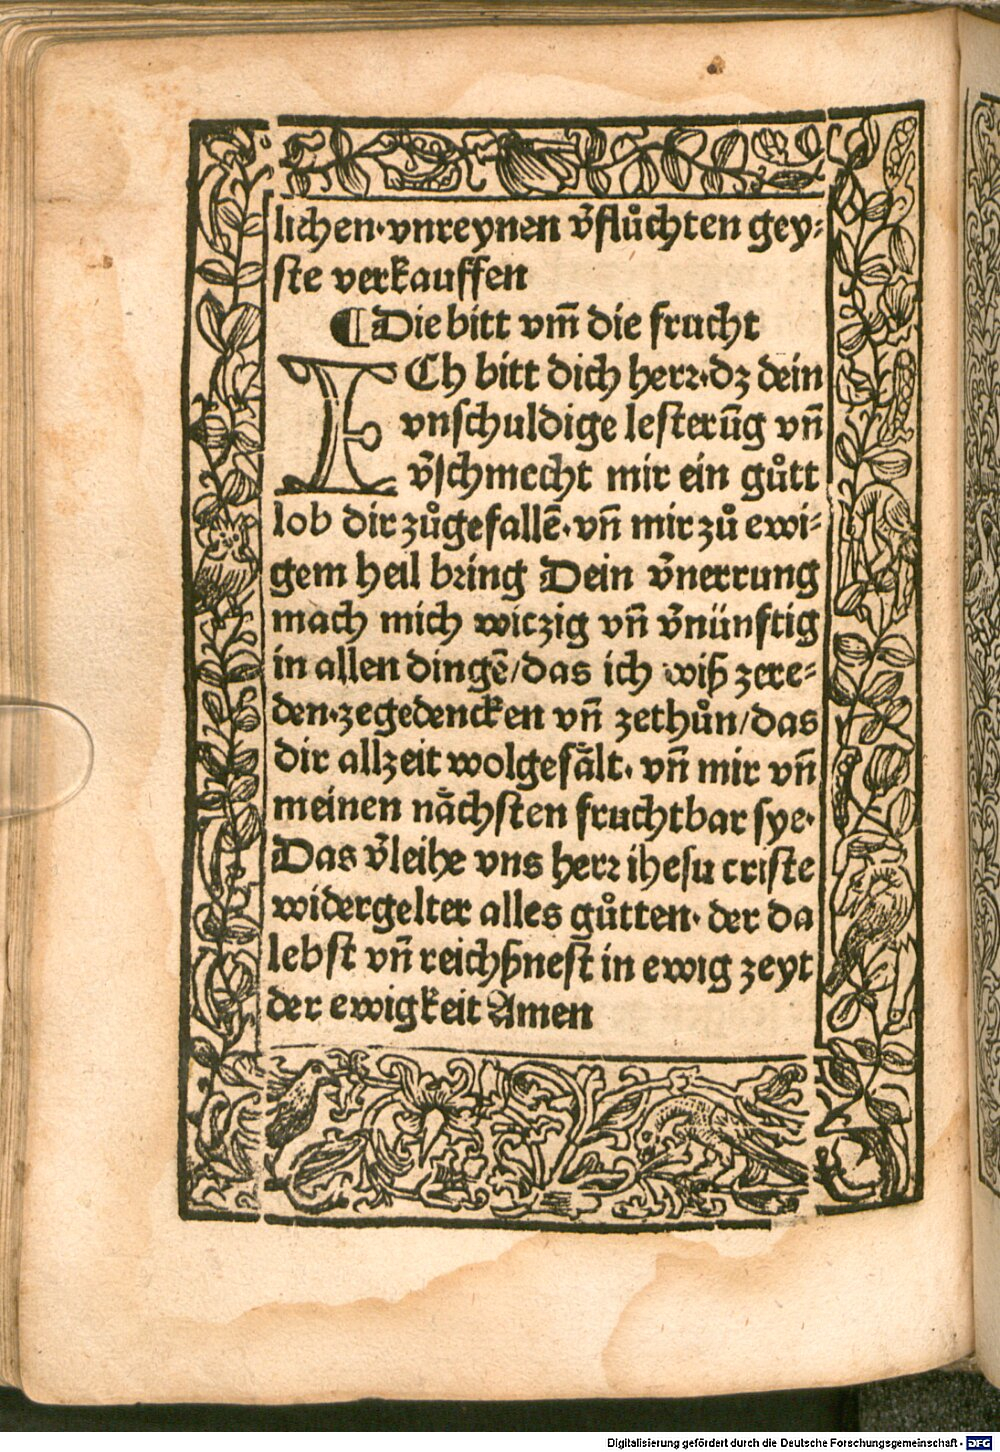 lichen·vnreynen v̄flůchten gey⸗
ste verkauffen
¶Die bitt vm̄ die frucht
ICh bitt dich herr·dz dein
vnschuldige lesterūg vn̄
v̄schmecht mir ein gůtt
lob dir zůgefallē·vn̄ mir zů ewi⸗
gem heil bring Dein v̄nerrung
mach mich wiczig vn̄ v̄nünftig
in allen dingē/das ich wiß zere⸗
den·zegedencken vn̄ zethůn/das
dir allzeit wolgefält· vn̄ mir vn̄
meinen nächsten fruchtbar sye·
Das v̄leihe vns herr ihesu criste
widergelter alles gůtten· der da
lebst vn̄ reichßnest in ewig zeyt
der ewigkeit Amen
Digitalisierung gefördert durch die Deutsche Forschungsgemeinschaft - DFG